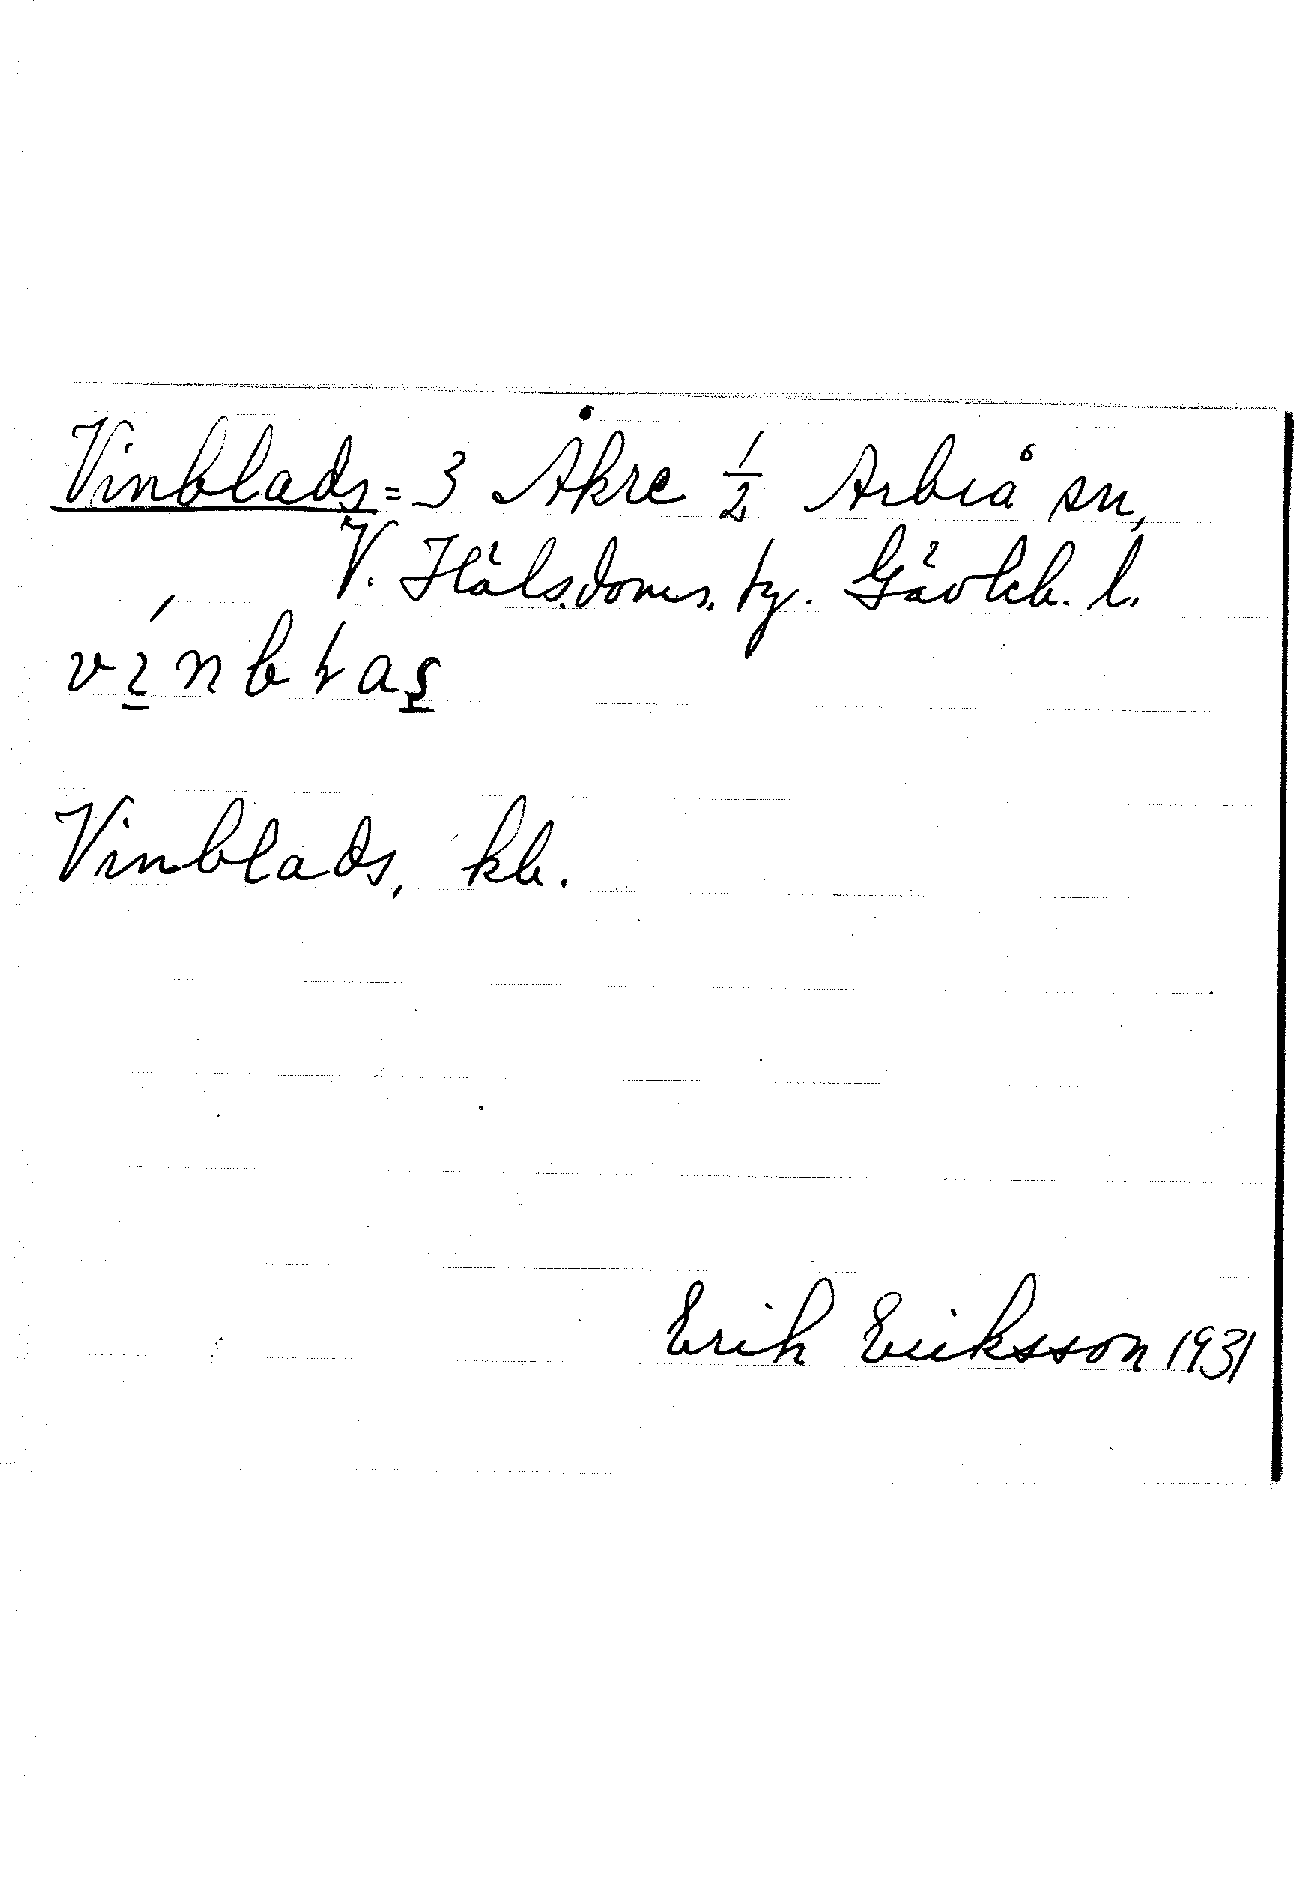 Vinblads = 3 Åkre 1/2 Arbrå sn,
V. Häls. doms. tg. Gävleb. l.
Vinblads, kb.
Erik Eriksson 1931